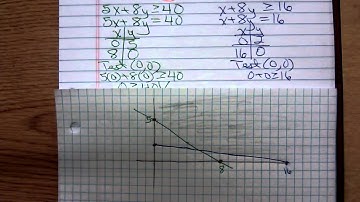 5x+8y≥40
5x+8y=40
x y
0 5
8 0
Test (0,0)
5(0)+8(0)≥40
x+8y≥16
x+8y=16
x y
0 2
16 0
Test (0,0)
0+0≥16
5
8
16